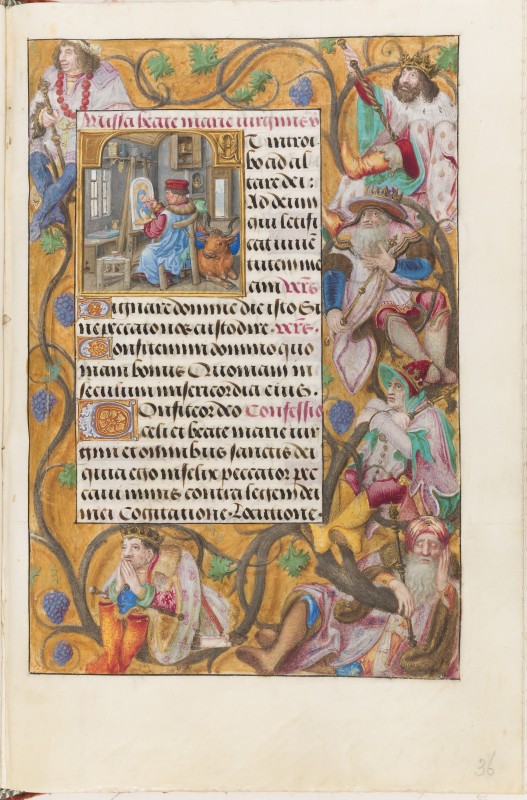 Missa beate marie virginis
T introi
bo ad al
tare dei:
Ad deum
qui letifi
cat iuuē
tutem me
am
Dignare domine die isto Si
ne peccato nos custodire.
Confitemini domino quo
niam bonus Quoniam in
seculum misericordia eius.
Confiteor deo Confessio
celi et beate marie vir
gini et omnibus sanctis dei
quia ego infelix peccator pec
caui nimis contra legem dei
mei Cogitatione. Locutione.
36